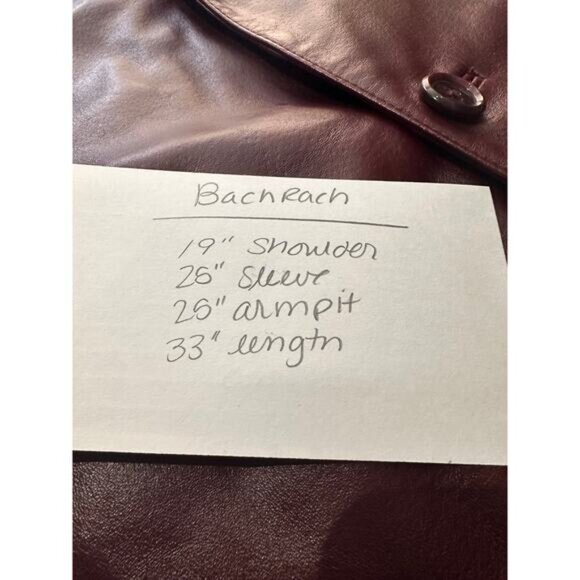 BachRach
19" Shoulder
25" Sleeve
25" armpit
33" length